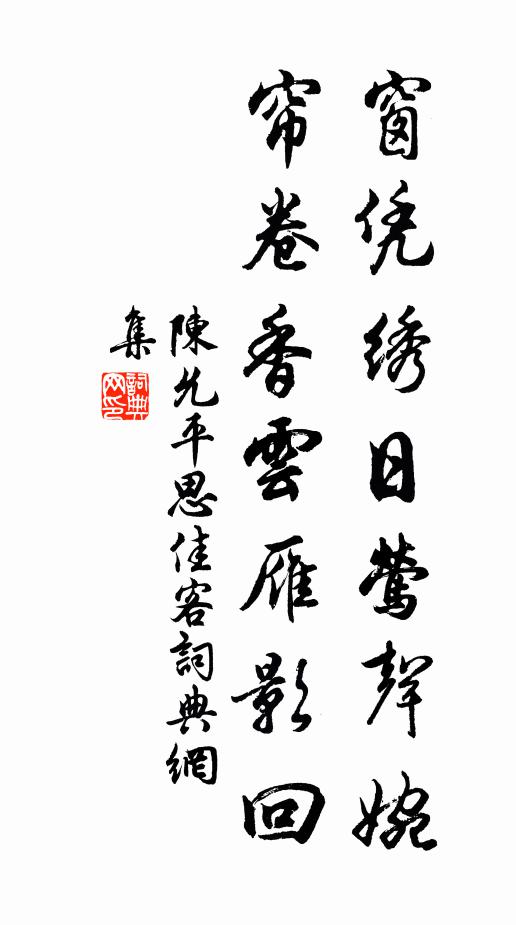 窗凭绣日莺聲婉
帘卷香雲雁影回
陳允平思佳客詞典網
集
詞典网印